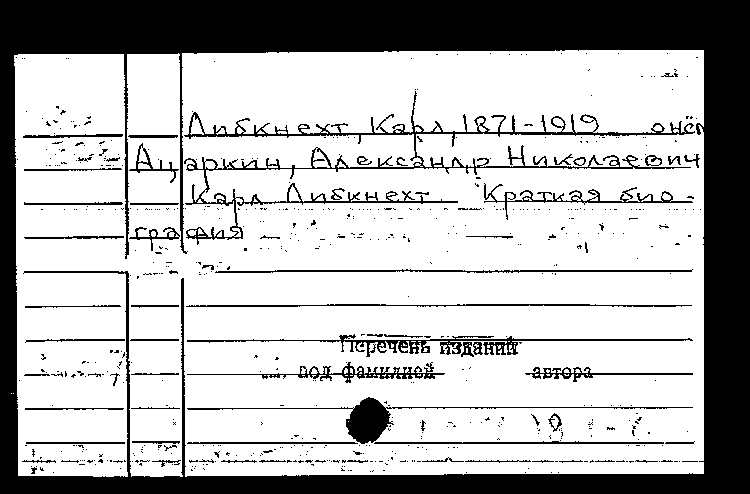 Либкнехт, Карл, 1871-1919 о нём
Ацаркин, Александр Николаевич
Карл Либкнехт. Краткая био-
графия
Перечень изданий
под фамилией автора